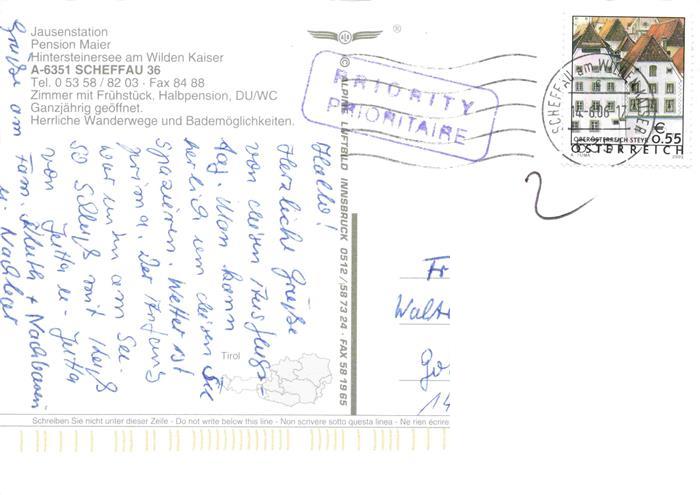 Jausenstation
Pension Maier
Hintersteinersee am Wilden Kaiser
A-6351 SCHEFFAU 36
Tel. 0 53 58 / 82 03 · Fax 84 88
Zimmer mit Frühstück, Halbpension, DU/WC
Ganzjährig geöffnet.
Herrliche Wanderwege und Bademöglichkeiten.
®
PRIORITY
PRIORITAIRE
SCHEFFAU am WILDEN KAISER
14.-8.06-17
€
0.55
OBERÖSTERREICH STEYR
ÖSTERREICH
2002
© ALPINE LUFTBILD INNSBRUCK 0512/58 73 24 · FAX 58 19 65
Hallo!
Herzliche Grüße
von diesem Ausflugs-
tag. Man kann
herrlich um diesen See
spazieren. Wetter ist
prima. Der Anfang
war unten am See
so
von Jutta u. Jutta
Fam. + Nachbarin
u. Nachbar
Grüße am
Fr
Walt
Go
14
Tirol
Schreiben Sie nicht unter dieser Zeile - Do not write below this line - Non scrivere sotto questa linea - Ne rien écrire